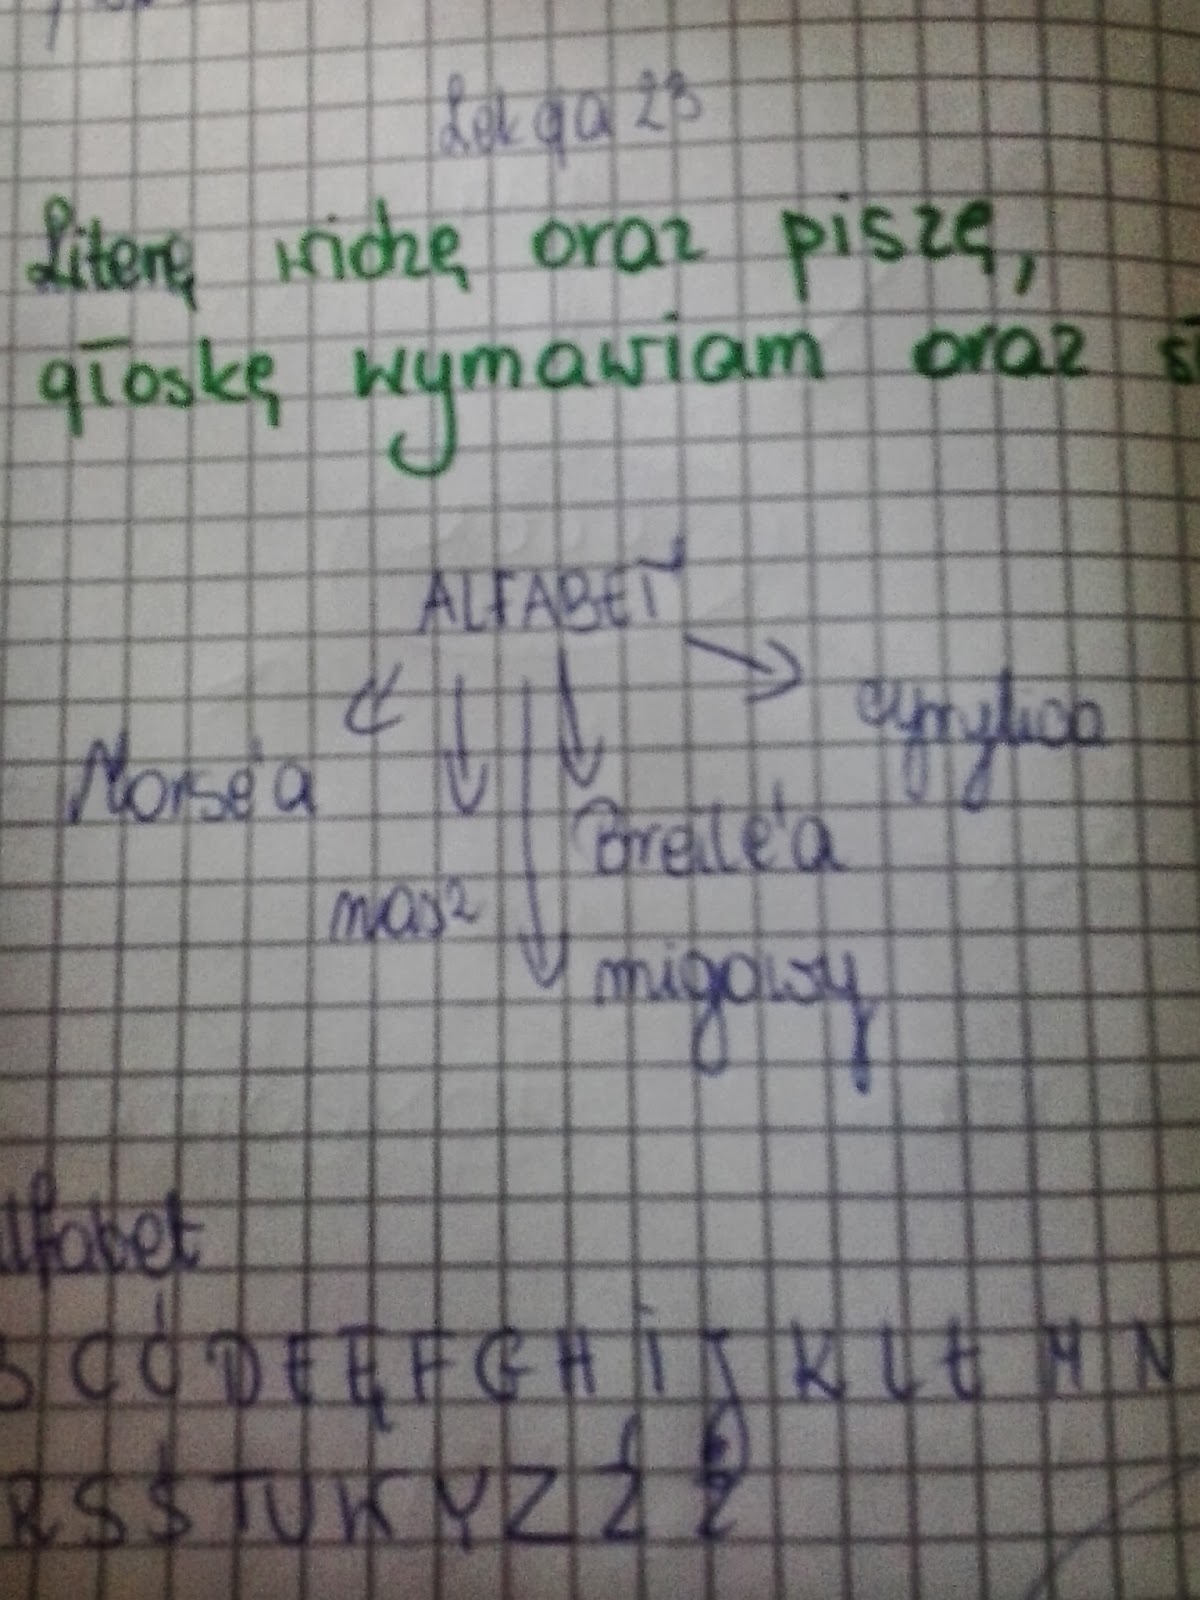 Lekcja 23
Literę widzę oraz piszę,
głoskę wymawiam oraz
ALFABET
cyrylica
Morse'a
Breille'a
nasz
migowy
alfabet
B C Ć D E Ę F G H I J K L Ł M N
R S Ś T U W Y Z Ź Ż